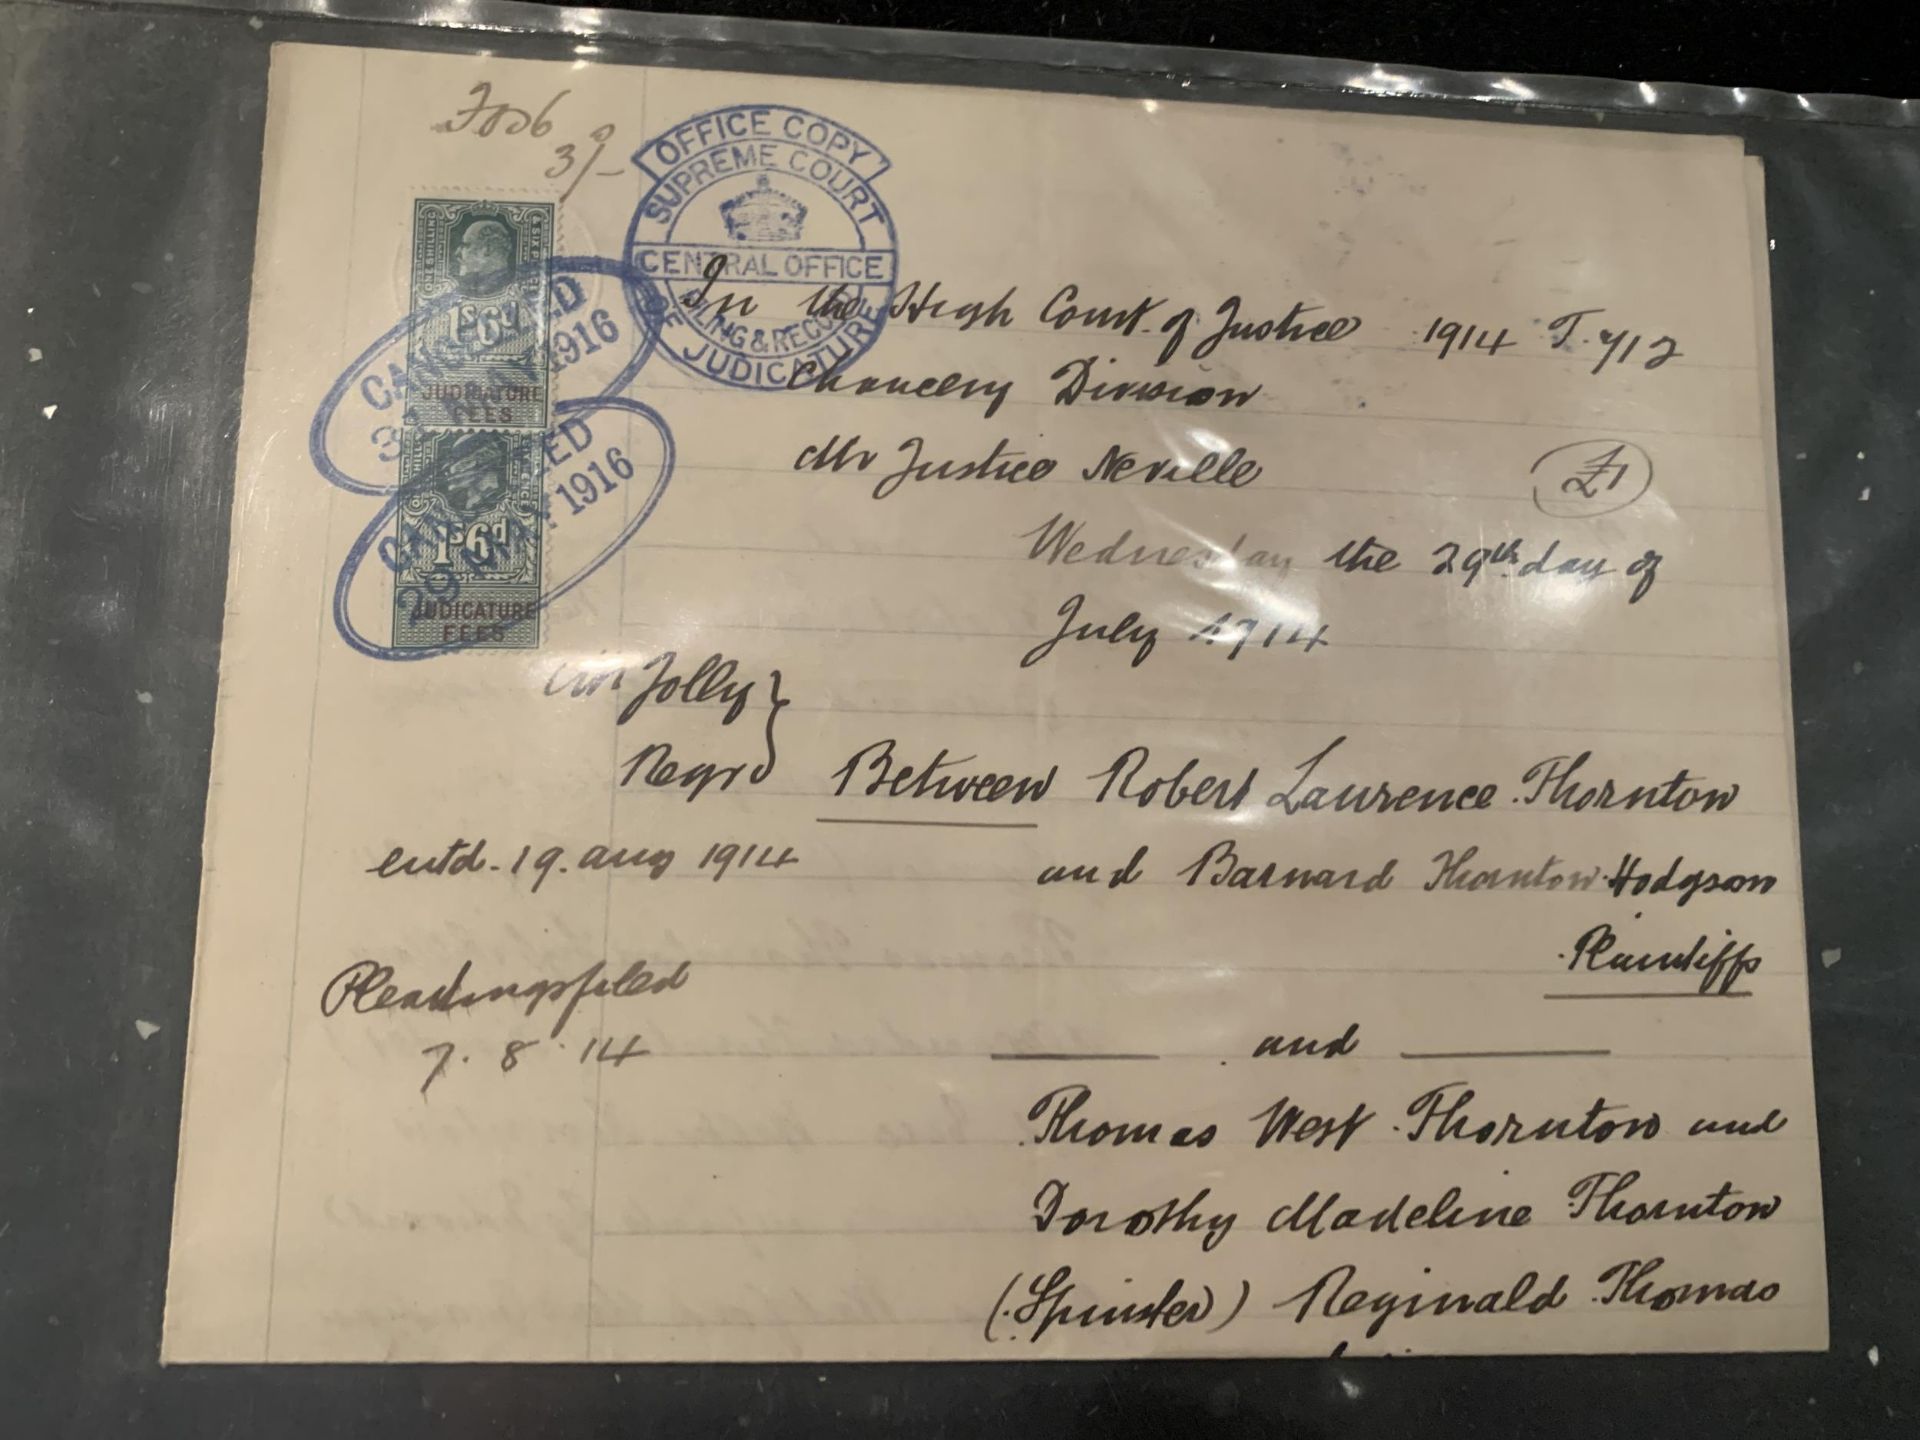 3/-
OFFICE COPY
SUPREME COURT
CENTRAL OFFICE
FILING & RECORD
OF JUDICATURE
ONE SHILLING & SIX PENCE
1s6d
JUDICATURE
FEES
CANCELLED
MAY 1916
1s6d
JUDICATURE
FEES
CANCELLED
29 MAY 1916
In the High Court of Justice 1914 T. 712
Chancery Division
Mr Justice Neville
£1
Wednesday the 29th day of
July 1914
Mr Jolly
Regr
Between Robert Laurence Thornton
entd. 19. aug 1914
and Barnard Thornton Hodgson
Plaintiffs
Pleadings filed
7. 8. 14
and
Thomas West Thornton and
Dorothy Madeline Thornton
(Spinster) Reginald Thomas